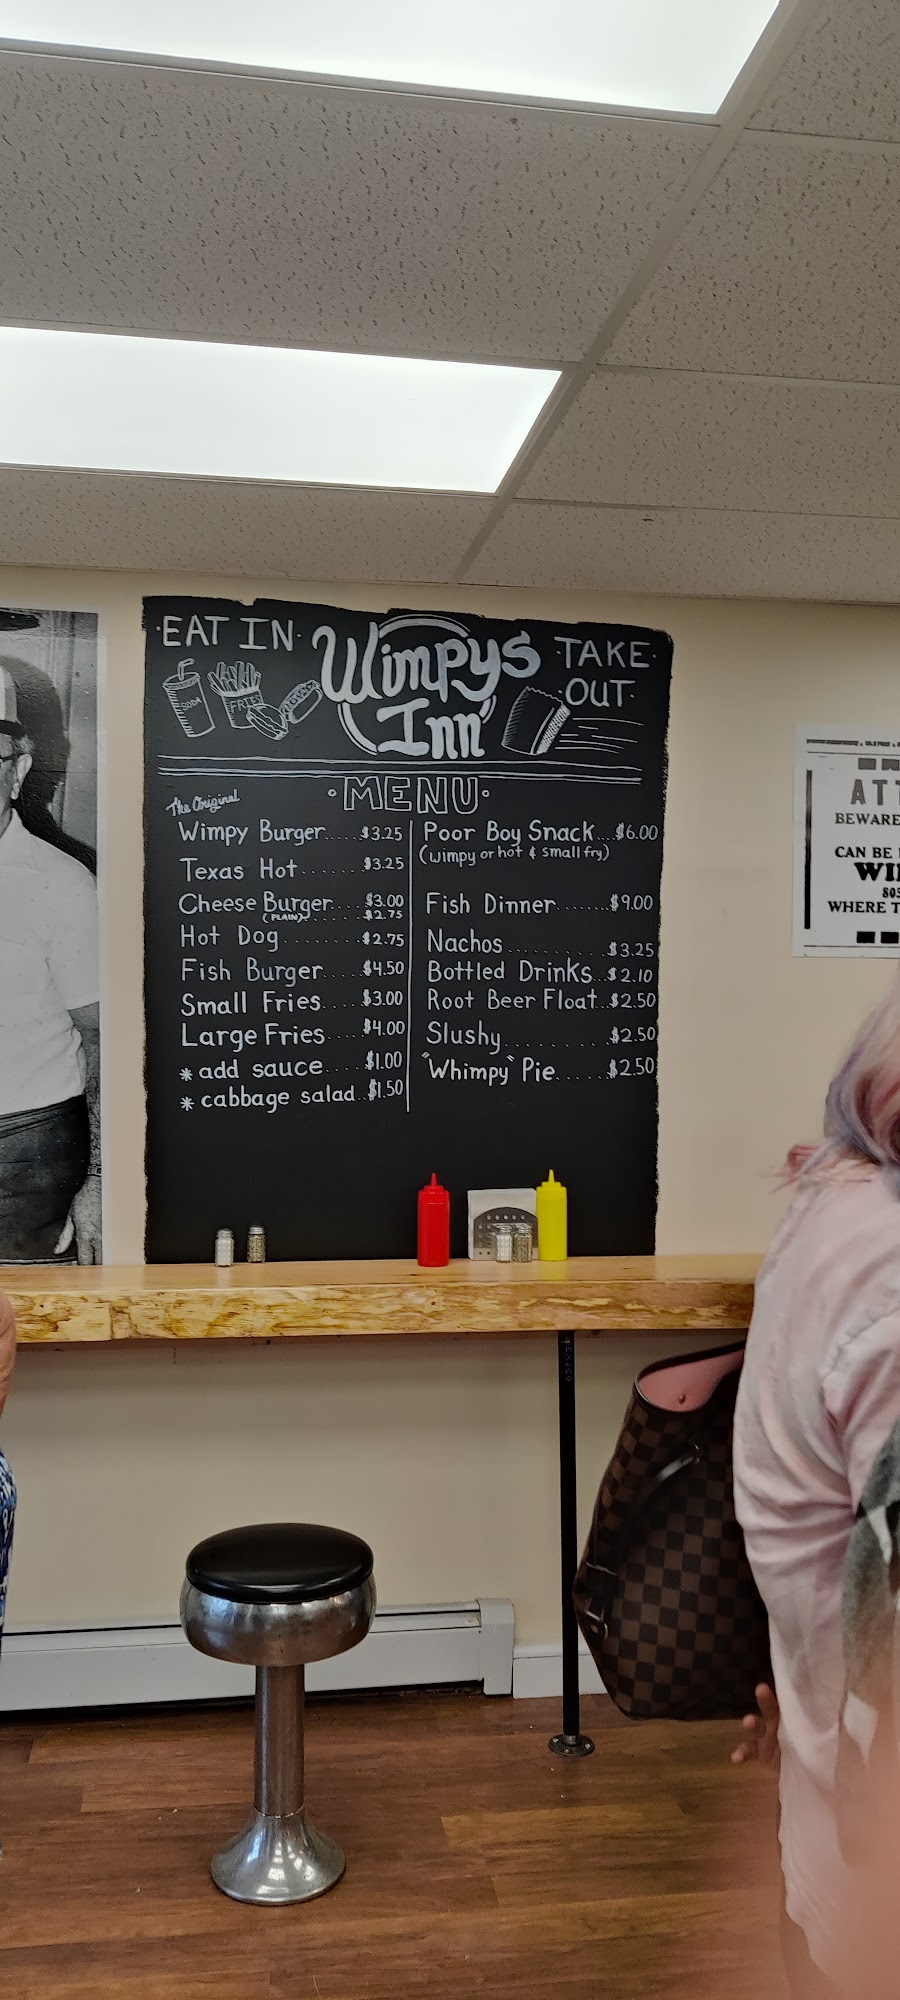 EAT IN
Wimpys
Inn
TAKE
OUT
SODA
FRIES
MENU
The Original
Wimpy Burger.....$3.25
Texas Hot.......$3.25
Cheese Burger....$3.00
(PLAIN)......$2.75
Hot Dog.........$2.75
Fish Burger.....$4.50
Small Fries.....$3.00
Large Fries.....$4.00
* add sauce.....$1.00
* cabbage salad..$1.50
Poor Boy Snack...$6.00
(wimpy or hot & small fry)
Fish Dinner.......$9.00
Nachos..........$3.25
Bottled Drinks..$2.10
Root Beer Float..$2.50
Slushy..........$2.50
"Whimpy" Pie......$2.50
BEWARE
CAN BE
WHERE